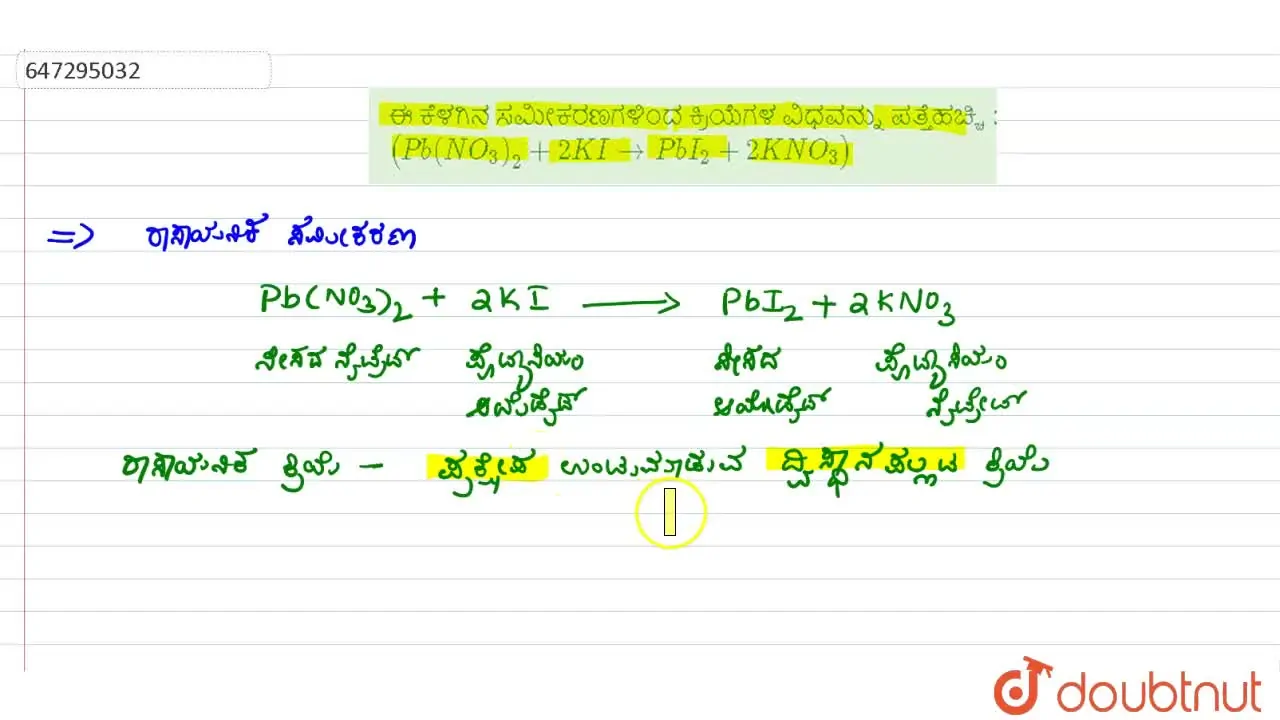 647295032
ಈ ಕೆಳಗಿನ ಸಮೀಕರಣಗಳಿಂದ ಕ್ರಿಯೆಗಳ ವಿಧವನ್ನು ಪತ್ತೆಹಚ್ಚಿ :
(Pb(NO₃)₂ + 2KI → PbI₂ + 2KNO₃)
=> ರಾಸಾಯನಿಕ ಸಮೀಕರಣ
Pb(NO₃)₂ + 2KI ⟶ PbI₂ + 2KNO₃
ಸೀಸದ ನೈಟ್ರೇಟ್ ಪೊಟ್ಯಾಸಿಯಂ ಸೀಸದ ಪೊಟ್ಯಾಸಿಯಂ
ಅಯೊಡೈಡ್ ಅಯೋಡೈಡ್ ನೈಟ್ರೇಟ್
ರಾಸಾಯನಿಕ ಕ್ರಿಯೆ – ಪ್ರಕ್ಷೇಪ ಉಂಟುಮಾಡುವ ದ್ವಿಸ್ಥಾನಪಲ್ಲಟ ಕ್ರಿಯೆ
doubtnut